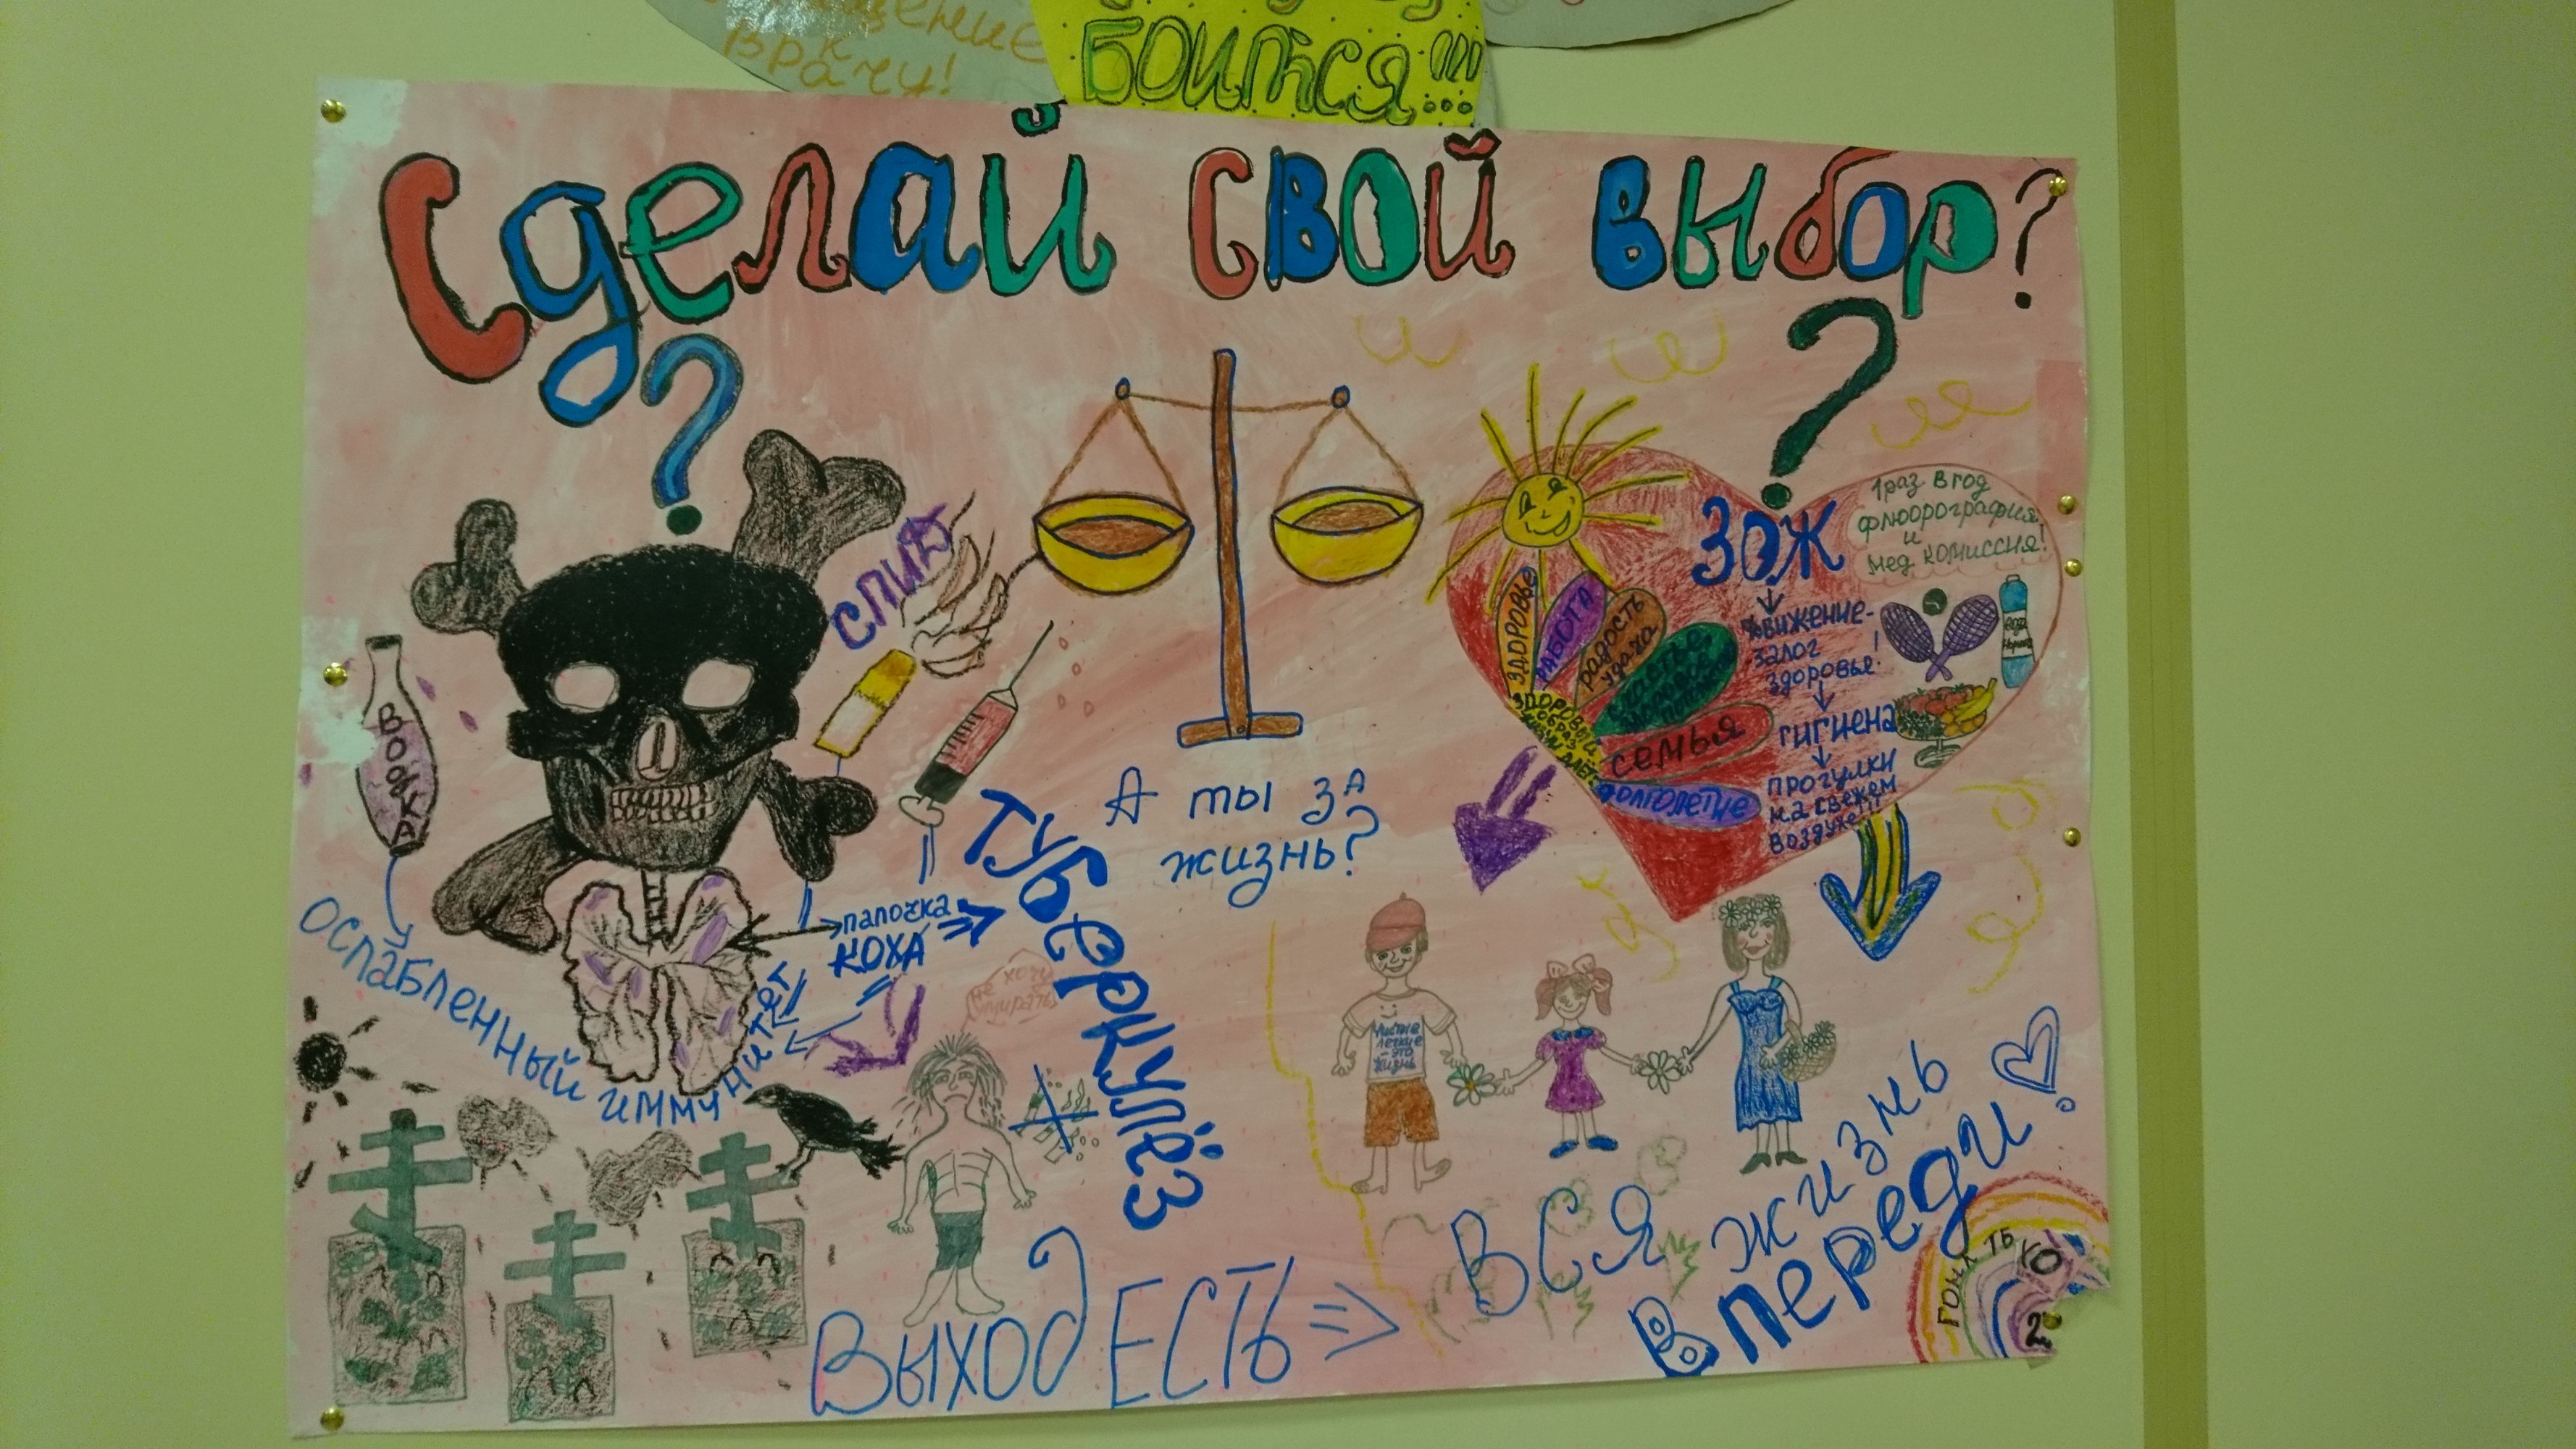 к
врачу!
БОИТСЯ!!!
Сделай свой выбор?
?
?
СПИД
ВОДКА
ослабленный иммунитет
палочка
КОХА
Туберкулёз
не хочу
умирать!
А ты за
жизнь?
ЗОЖ
1 раз в год
флюорография
и
мед комиссия!
Движение-
залог
здоровья!
гигиена
прогулки
на свежем
воздухе!!!
ЗДОРОВЬЕ
РАБОТА
радость
удача
счастье
семья
долголетие
ЗДОРОВЫЙ
ОБРАЗ
вода
Чистые
легкие
-это
жизнь
Выход ЕСТЬ =>
ВСЯ жизнь
Впереди!